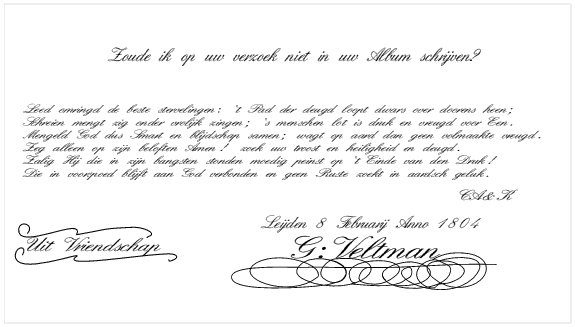 Zoude ik op uw verzoek niet in uw Album schrijven?
Leed omringd de beste stervelingen: 't Pad der deugd loopt dwars over doorens heen;
Schreien mengt zig onder vrolijk zingen; 's menschen lot is druk en vreugd voor Een.
Mengeld God dus Smart en blijdschap samen; wagt op aard dan geen volmaakte vreugd.
Zeg alleen op zijn beloften Amen! zoek uw troost en heiligheid en deugd.
Zalig Hij die in zijn bangsten stonden moedig peinst op 't Einde van den Druk!
Die in voorspoed blijft aan God verbonden en geen Ruste zoekt in aardsch geluk.
CA&K
Leijden 8 Februarij Anno 1804
Uit Vriendschap
G: Veltman